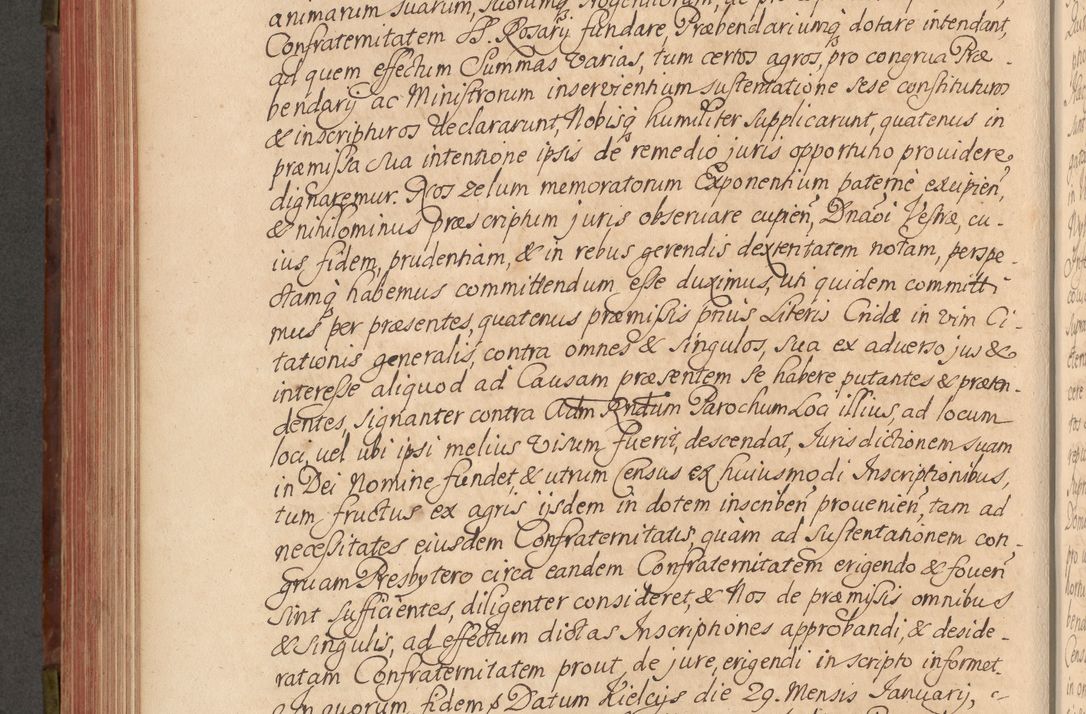 animarum suarum, suorumq́
Confraternitatem SS. Rosarÿ fundare, Præbendariumq́ dotare intendant,
ad quem effectum Summas varias, tum certos agros, pro congrua Præ-
bendarÿ ac Ministrorum inservientium sustentatione sese constituturos
& inscripturos declararunt, Nobisq́ humiliter supplicarunt, quatenus in
præmissa sua intentione ipsis de remedio juris opportuno providere
dignaremur. Nos zelum memoratorum Exponentium paternè excipień,
& nihilominus præscriptum juris observare cupień, Dnaoi Vestræ, cu-
ius fidem, prudentiam, & in rebus gerendis dexteritatem notam, perspe-
ctamq́ habemus committendum esse duximus, uti quidem committi-
mus per præsentes, quatenus præmissis prius Literis Cridæ in vim Ci-
tationis generalis, contra omnes & singulos, sua ex adverso jus &
interesse aliquod ad Causam præsentem se habere putantes & præten-
dentes, signanter contra Adm Rndum Parochum Loci illius, ad locum
loci, vel ubi ipsi melius visum fuerit, descendat, Jurisdictionem suam
in Dei Nomine fundet, & utrum Census ex huiusmodi Inscriptionibus,
tum fructus ex agris ijsdem in dotem inscribeń provenień, tam ad
necessitates eiusdem Confraternitatis, quàm ad sustentationem con-
gruam Presbytero circa eandem Confraternitatem erigendo & foveń
sint sufficientes, diligenter consideret, & Nos de præmissis omnibus
& singulis, ad effectum dictas Inscriptiones approbandi, & deside-
ratam Confraternitatem prout de jure, erigendi in scripto informet.
In quorum fidem Datum Kielcijs die 29. Mensis Januarij,